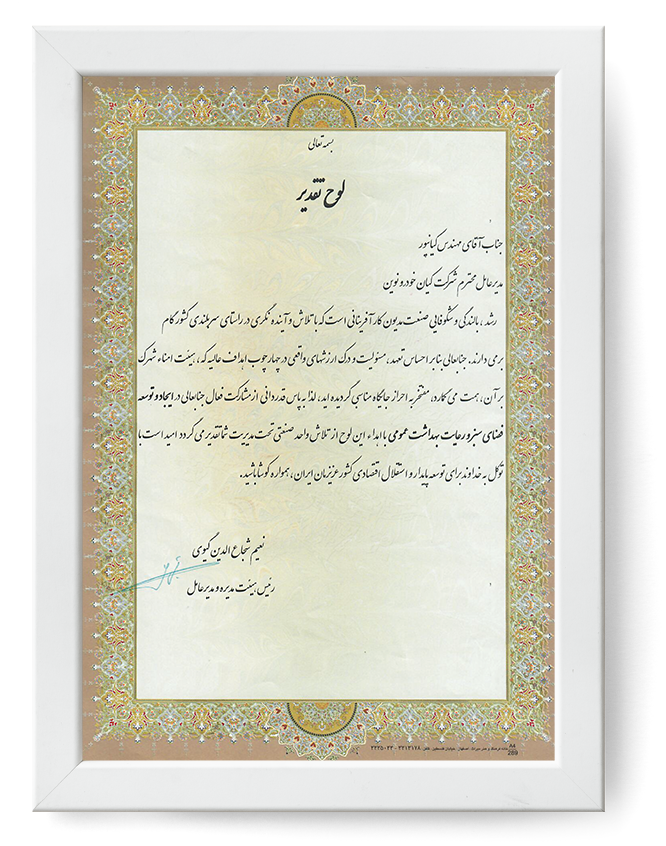 بسمه تعالی
لوح تقدیر
جناب آقای مهندس کیانپور
مدیرعامل محترم شرکت کیان خودرو نوین
رشد ، بالندگی و شکوفایی صنعت مدیون کارآفرینانی است که با تلاش و آینده نگری در راستای سربلندی کشور گام
برمی دارند. جنابعالی بنابر احساس تعهد ، مسئولیت و درک ارزشهای واقعی در چهارچوب اهداف عالیه که ، هیئت امناء شهرک
بر آن ، همت می گمارد ، مفتخر به احراز جایگاه مناسبی گردیده اید ، لذا به پاس قدردانی از مشارکت فعال جنابعالی در ایجاد و توسعه
فضای سبز و رعایت بهداشت عمومی با اهداء این لوح از تلاش واحد صنعتی تحت مدیریت شما تقدیر می گردد امید است با
توکل به خداوند برای توسعه پایدار و استقلال اقتصادی کشور عزیزمان ایران ، همواره کوشا باشید.
نعیم شجاع الدین گیوی
رئیس هیئت مدیره و مدیرعامل
A4
289